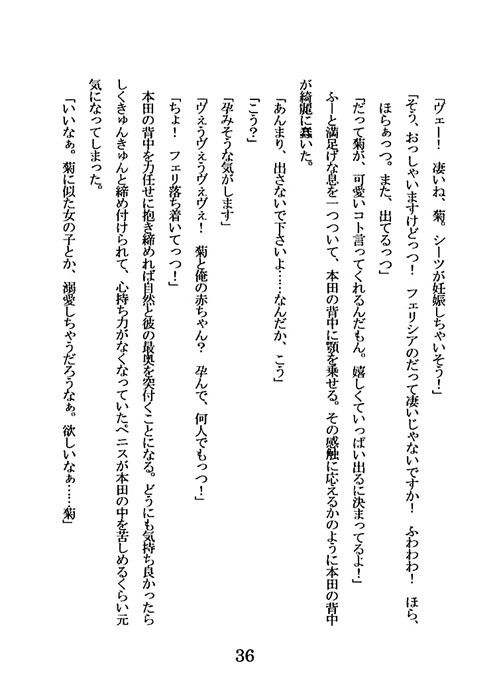 「ヴェー！　凄いね、菊。シーツが妊娠しちゃいそう！」
「そう、おっしゃいますけどっつ！　フェリシアのだって凄いじゃないですか！　ふわわわ！　ほら、
ほらぁっつ。また、出てるっつ」
「だって菊が、可愛いコト言ってくれるんだもん。嬉しくていっぱい出るに決まってるよ！」
ふーと満足げな息を一つついて、本田の背中に顎を乗せる。その感触に応えるかのように本田の背中
が綺麗に蠢いた。
「あんまり、出さないで下さいよ……なんだか、こう」
「こう？」
「孕みそうな気がします」
「ヴェうヴェうヴェヴェ！　菊と俺の赤ちゃん？　孕んで、何人でもっつ！」
「ちょ！　フェリ落ち着いてっつ！」
本田の背中を力任せに抱き締めれば自然と彼の最奥を突付くことになる。どうにも気持ち良かったら
しくきゅんきゅんと締め付けられて、心持ち力がなくなっていたペニスが本田の中を苦しめるくらい元
気になってしまった。
「いいなぁ。菊に似た女の子とか、溺愛しちゃうだろうなぁ。欲しいなぁ……菊」
36